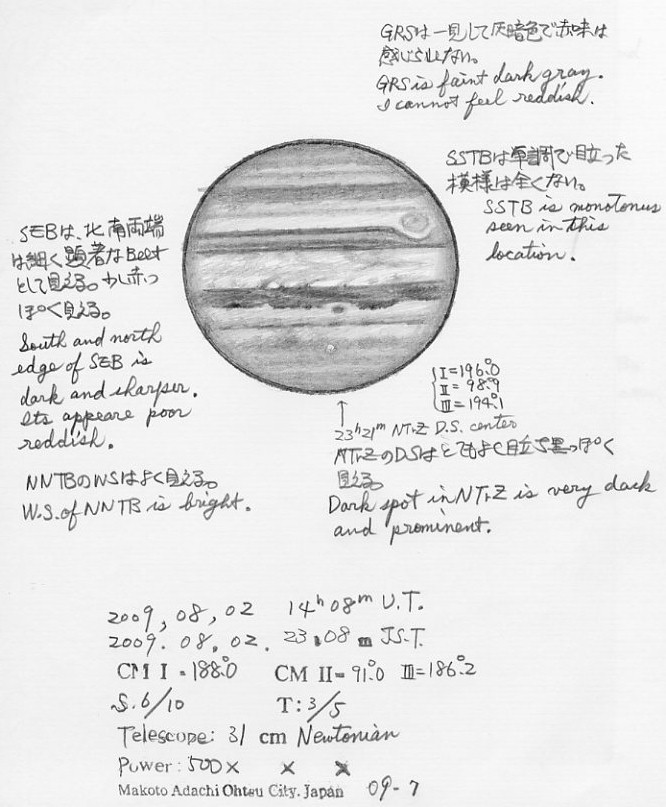 GRSは一見して灰暗色で赤味は
感じられない。
GRS is faint dark gray.
I cannot feel reddish.
SSTBは単調で目立った
模様は全くない。
SSTB is monotonus
seen in this
location.
SEBは、北南両端
は細く顕著なBelt
として見える。少し赤っ
ぽく見える。
South and north
edge of SEB is
dark and sharper.
Its appeare poor
reddish.
NNTBのWSはよく見える。
W.S. of NNTB is bright.
I = 196.°0
II = 98.°9
III = 194.°1
23h21m NTrZ D.S. center
NTrZのDSはとてもよく目立ち黒っぽく
見える。
Dark spot in NTrZ is very dark
and prominent.
2009, 08, 02 14h 08m U.T.
2009. 08. 02. 23 08 m JS.T.
CM I = 188.°0 CM II = 91.°0 III = 186.°2
S. 6/10 T: 3/5
Telescope: 31 cm Newtonian
Power: 500× × ×
Makoto Adachi Ohtsu City. Japan 09-7